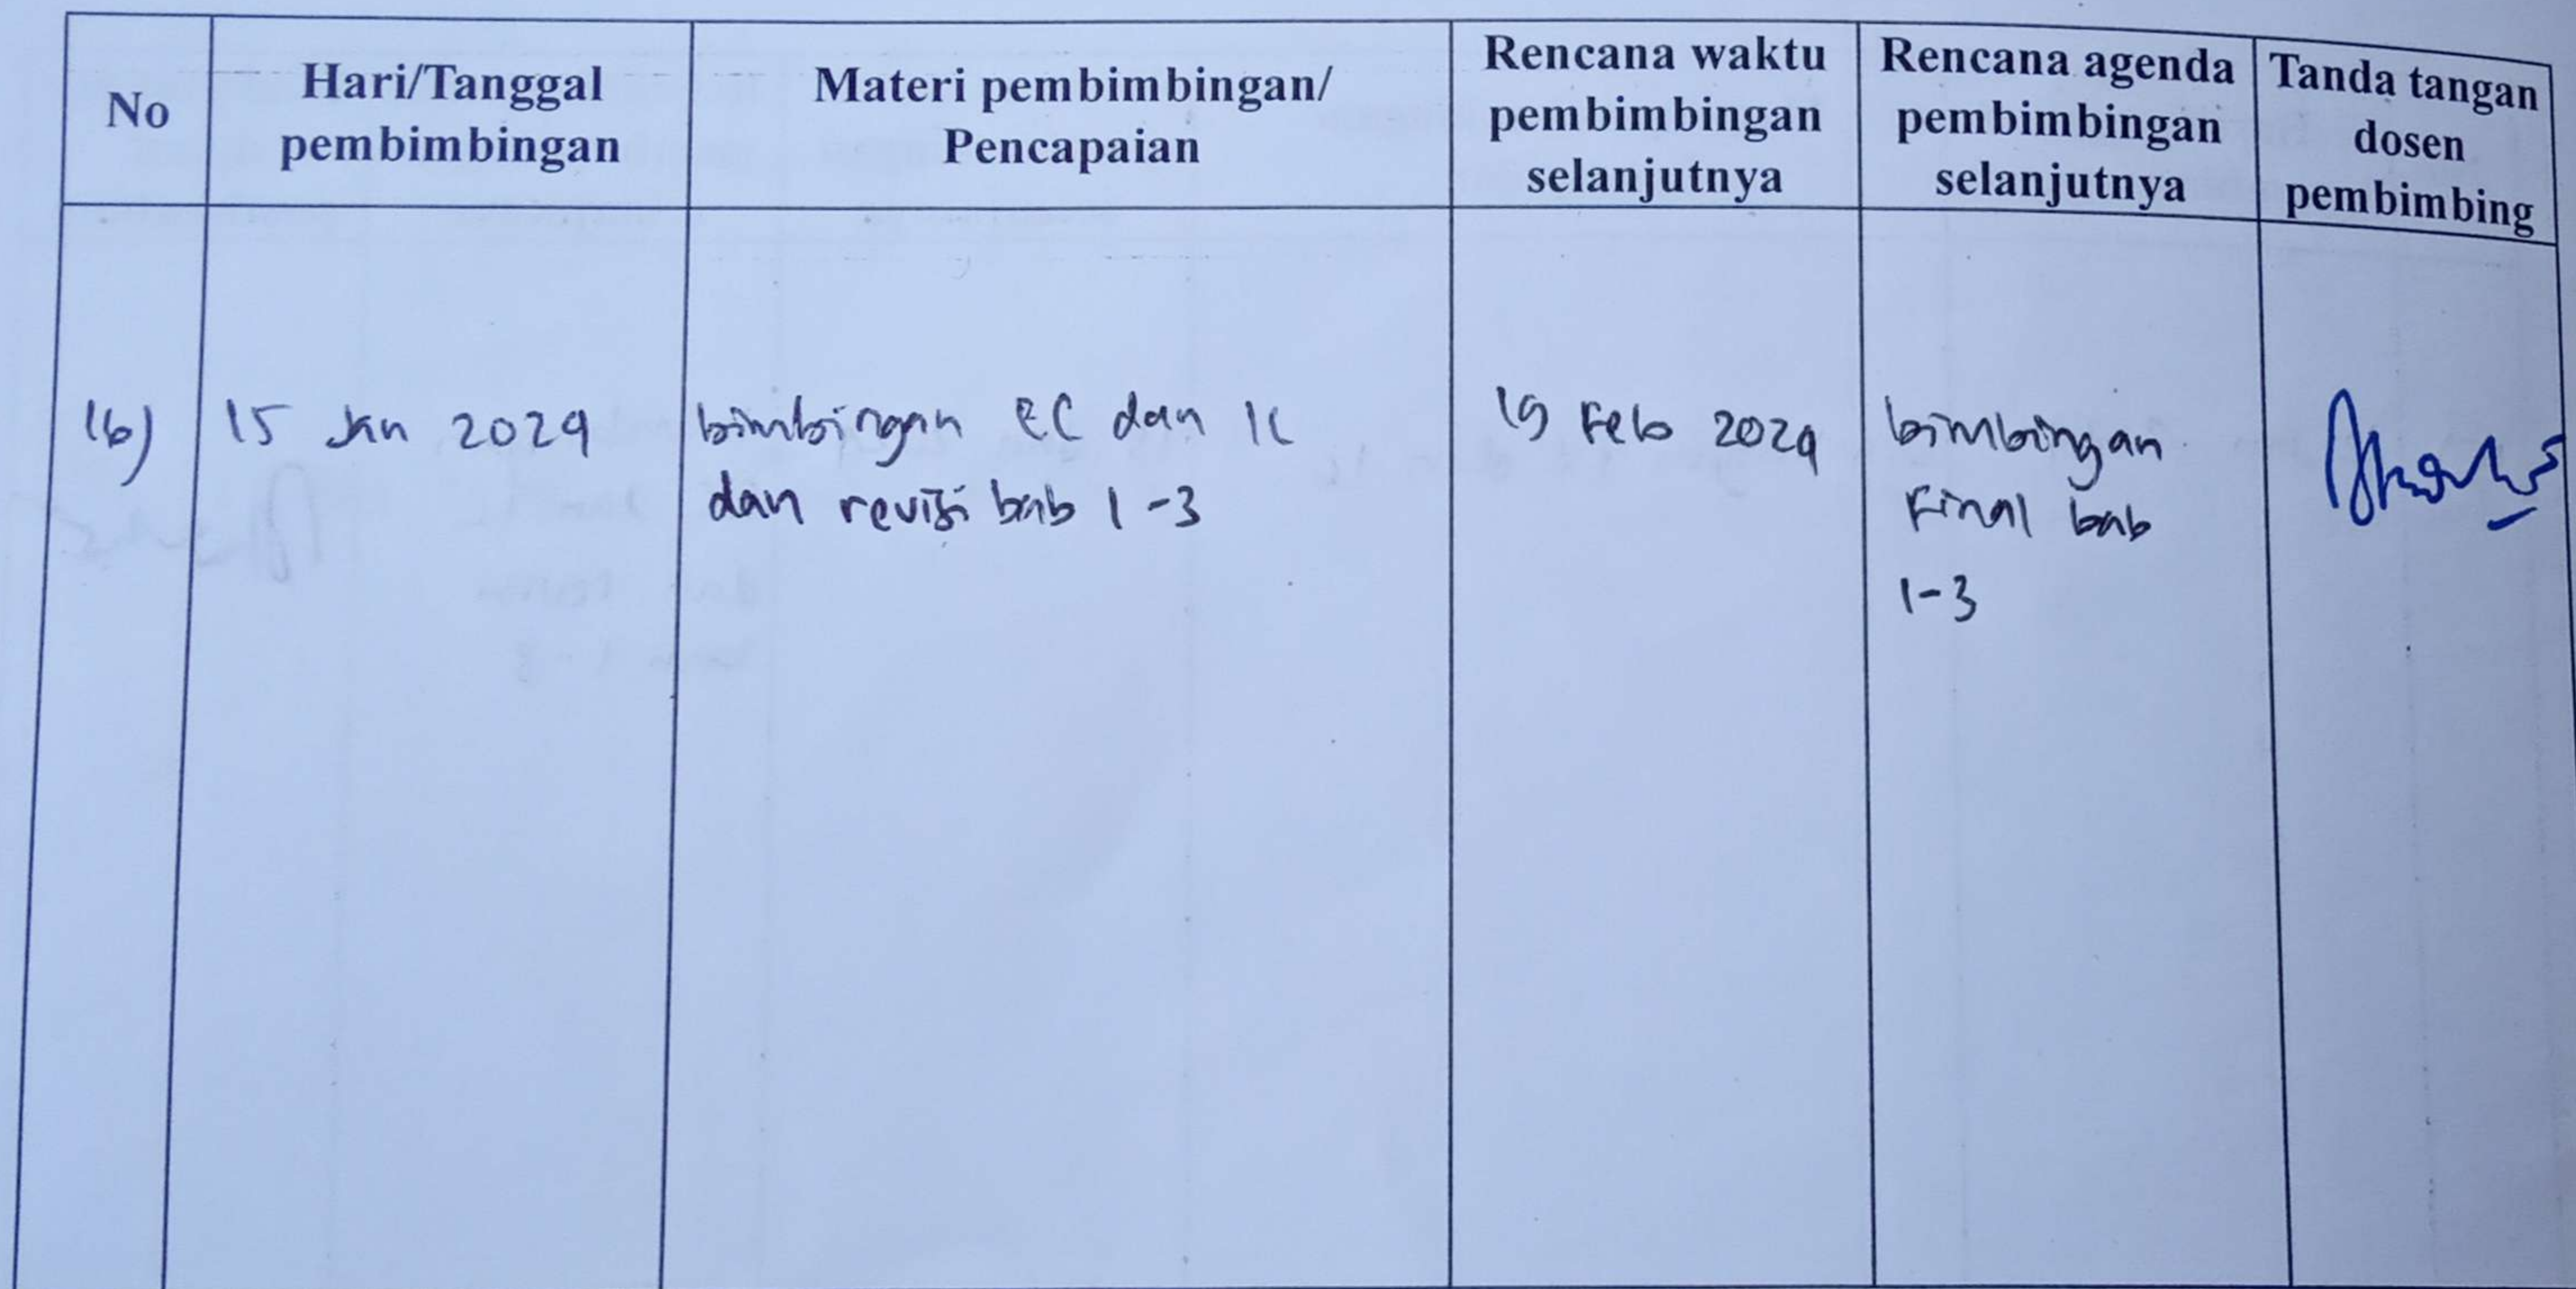 No
Hari/Tanggal
pembimbingan
Materi pembimbingan/
Pencapaian
Rencana waktu
pembimbingan
selanjutnya
Rencana agenda
pembimbingan
selanjutnya
Tanda tangan
dosen
pembimbing
16)
15 Jan 2024
bimbingan EC dan IC
dan revisi bab 1-3
19 Feb 2024
bimbingan
Final bab
1-3